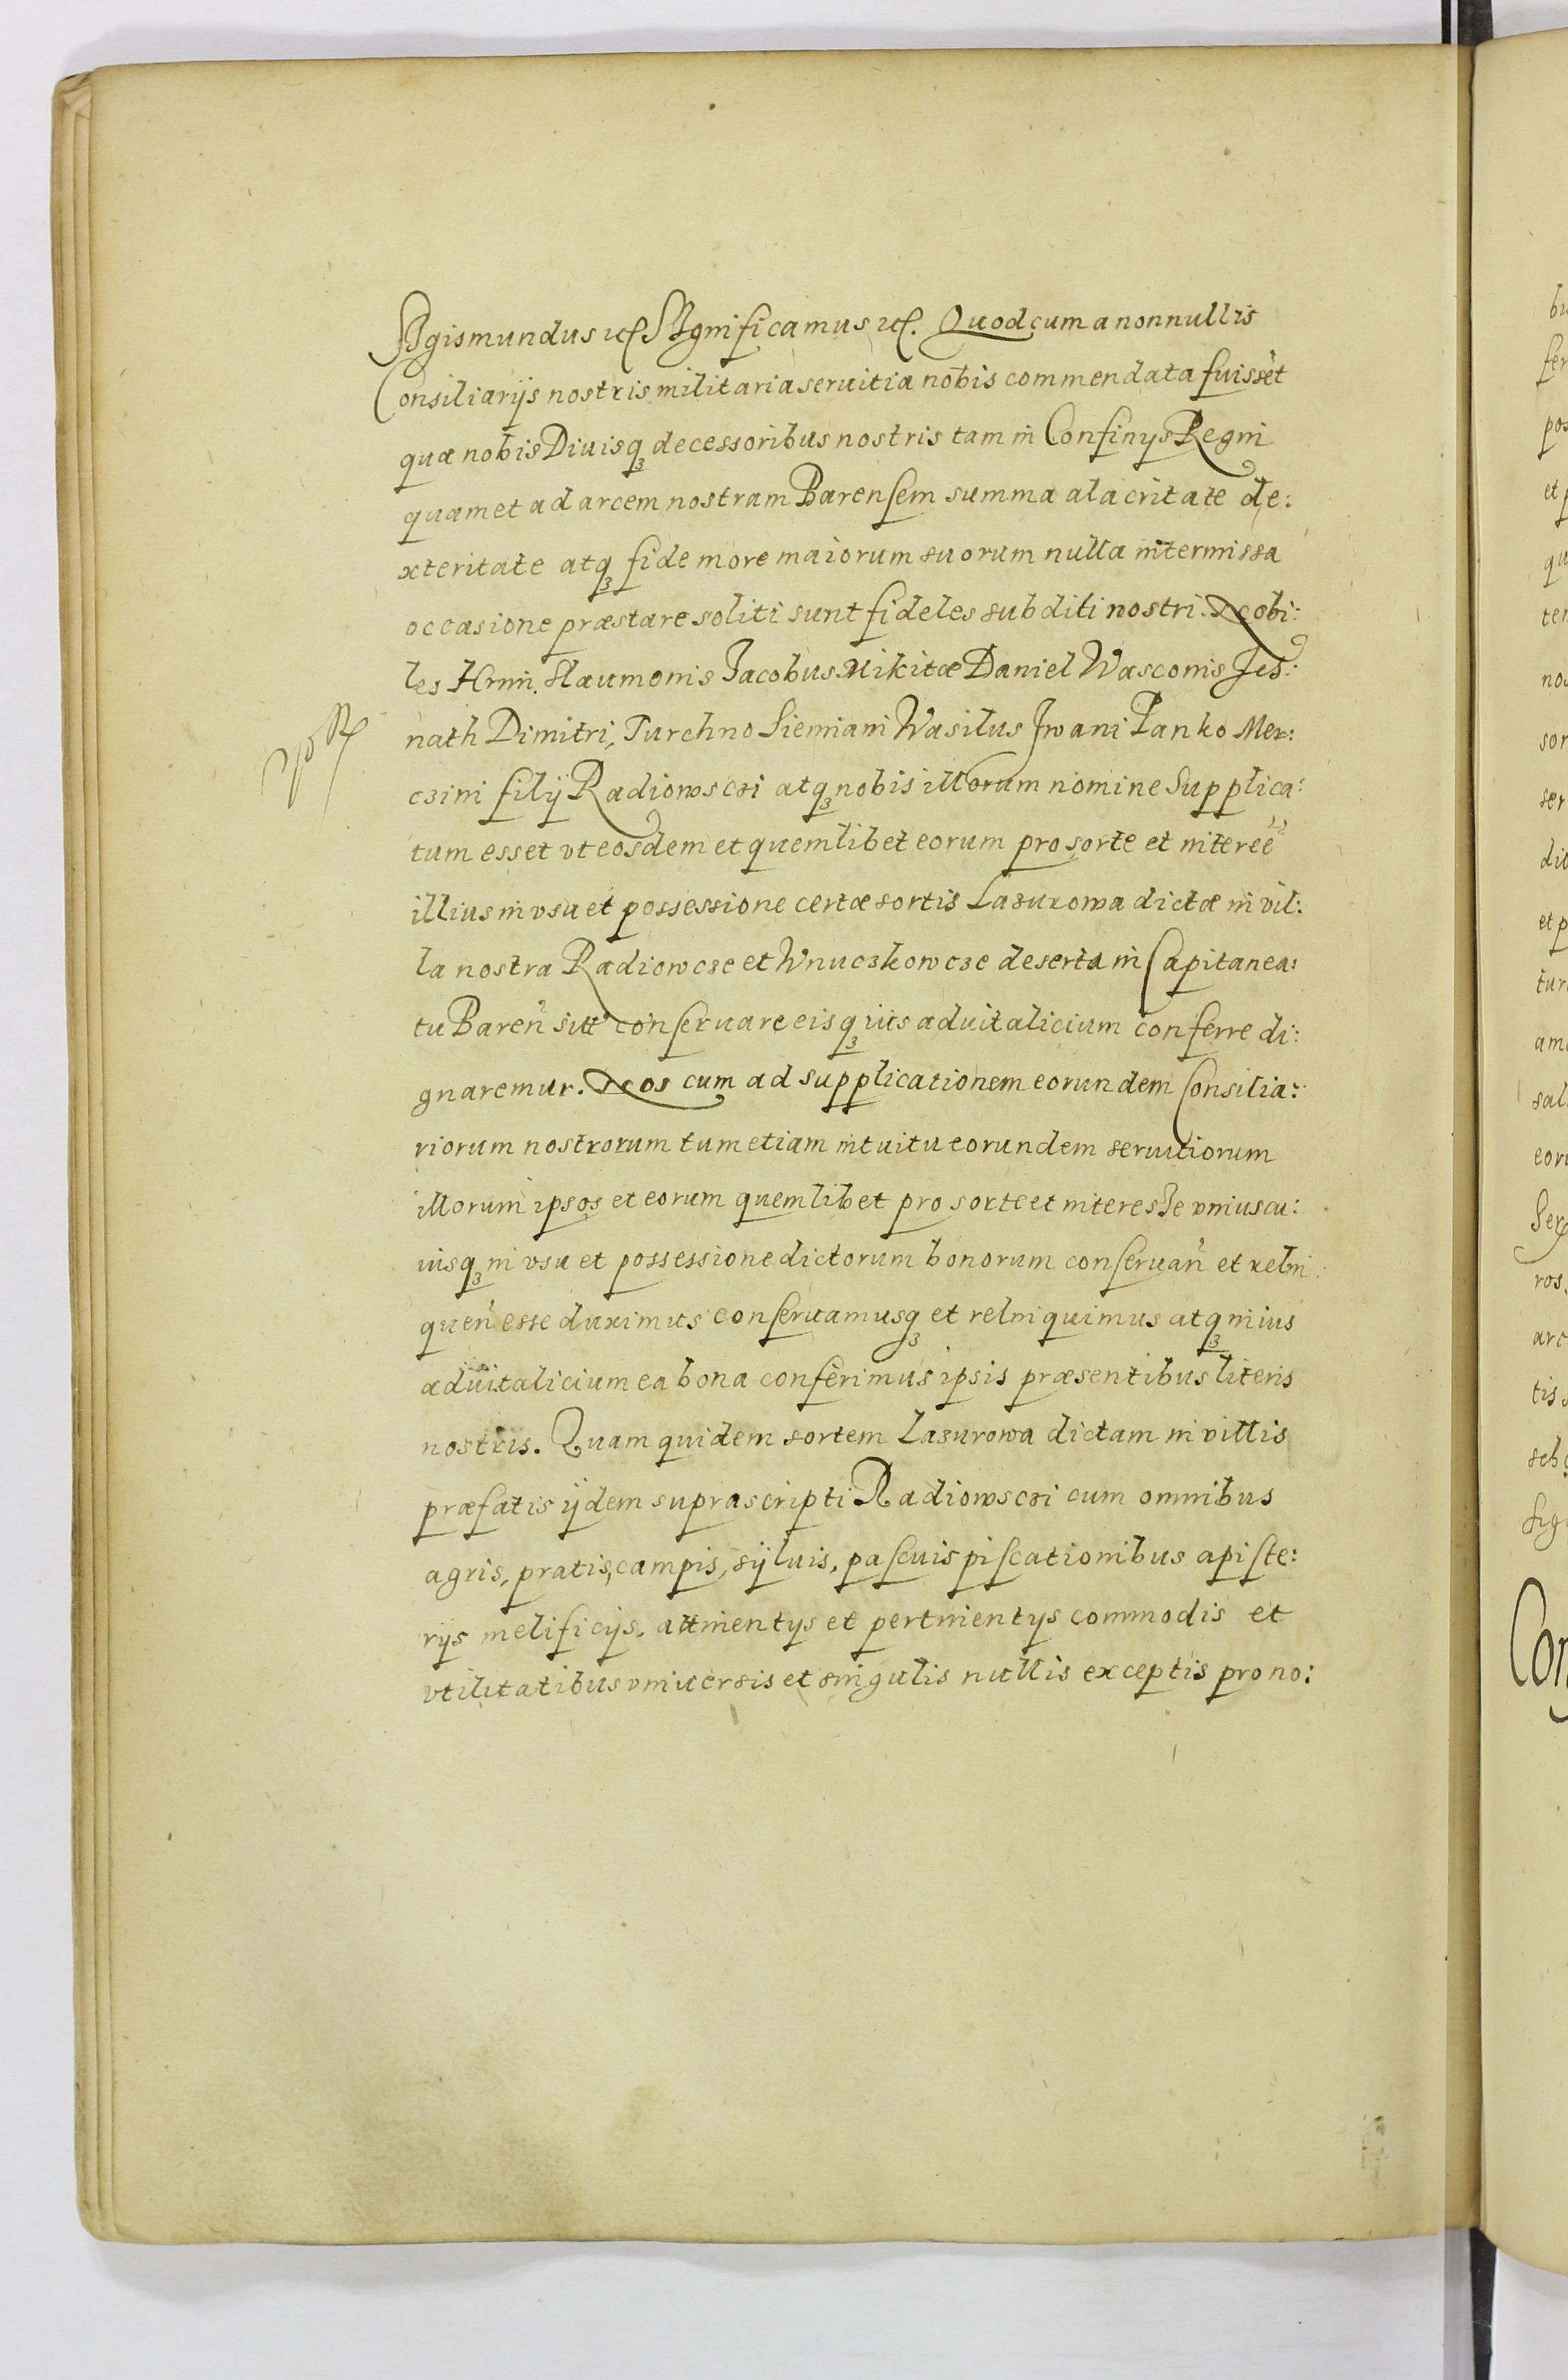 Sigismundus etc. Significamus etc. Quod cum a nonnullis
Consiliarijs nostris militaria seruitia nobis commendata fuissēt
quæ nobis Diuisq; decessoribus nostris tam in Confinijs Regni
quam et ad arcem nostram Barensem summa alacritate de:
xteritate atq; fide more maiorum suorum nulla intermissa
occasione præstare soliti sunt fideles subditi nostri. Nobi:
les Hrini Naumonis Jacobus Mikitæ Daniel Wasconis
nath Dimitri, Turchno Siemiani Wasilus Jwani Panko Mer:
czini filij Radiowsczi atq; nobis illorum nomine Supplica:
tum esset vt eosdem et quemlibet eorum pro sorte et interēe
illius in vsu et possessione certæ sortis Lazurowa dictæ in vil:
la nostra Radiowcze et Wnuczkowcze deserta in Capitanea:
tu Bareñ sitt conseruare eisq; ius aduitalicium conferre di:
gnaremur. Nos cum ad supplicationem eorundem Consilia:
riorum nostrorum tum etiam intuitu eorundem seruitiorum
illorum ipsos et eorum quemlibet pro sorte et interesse vniuscu:
iusq; in vsu et possessione dictorum bonorum conseruañ et relin
queñ esse duximus conseruamusq; et relinquimus atq; in ius
aduitalicium ea bona conferimus ipsis præsentibus literis
nostris. Quam quidem sortem Lazurowa dictam in villis
præfatis ijdem suprascripti Radiowsczi cum omnibus
agris, pratis, campis, sijluis, pascuis piscationibus apiste:
rijs melificijs, attinentijs et pertinentijs commodis et
vtilitatibus vniuersis et singulis nullis exceptis pro no: